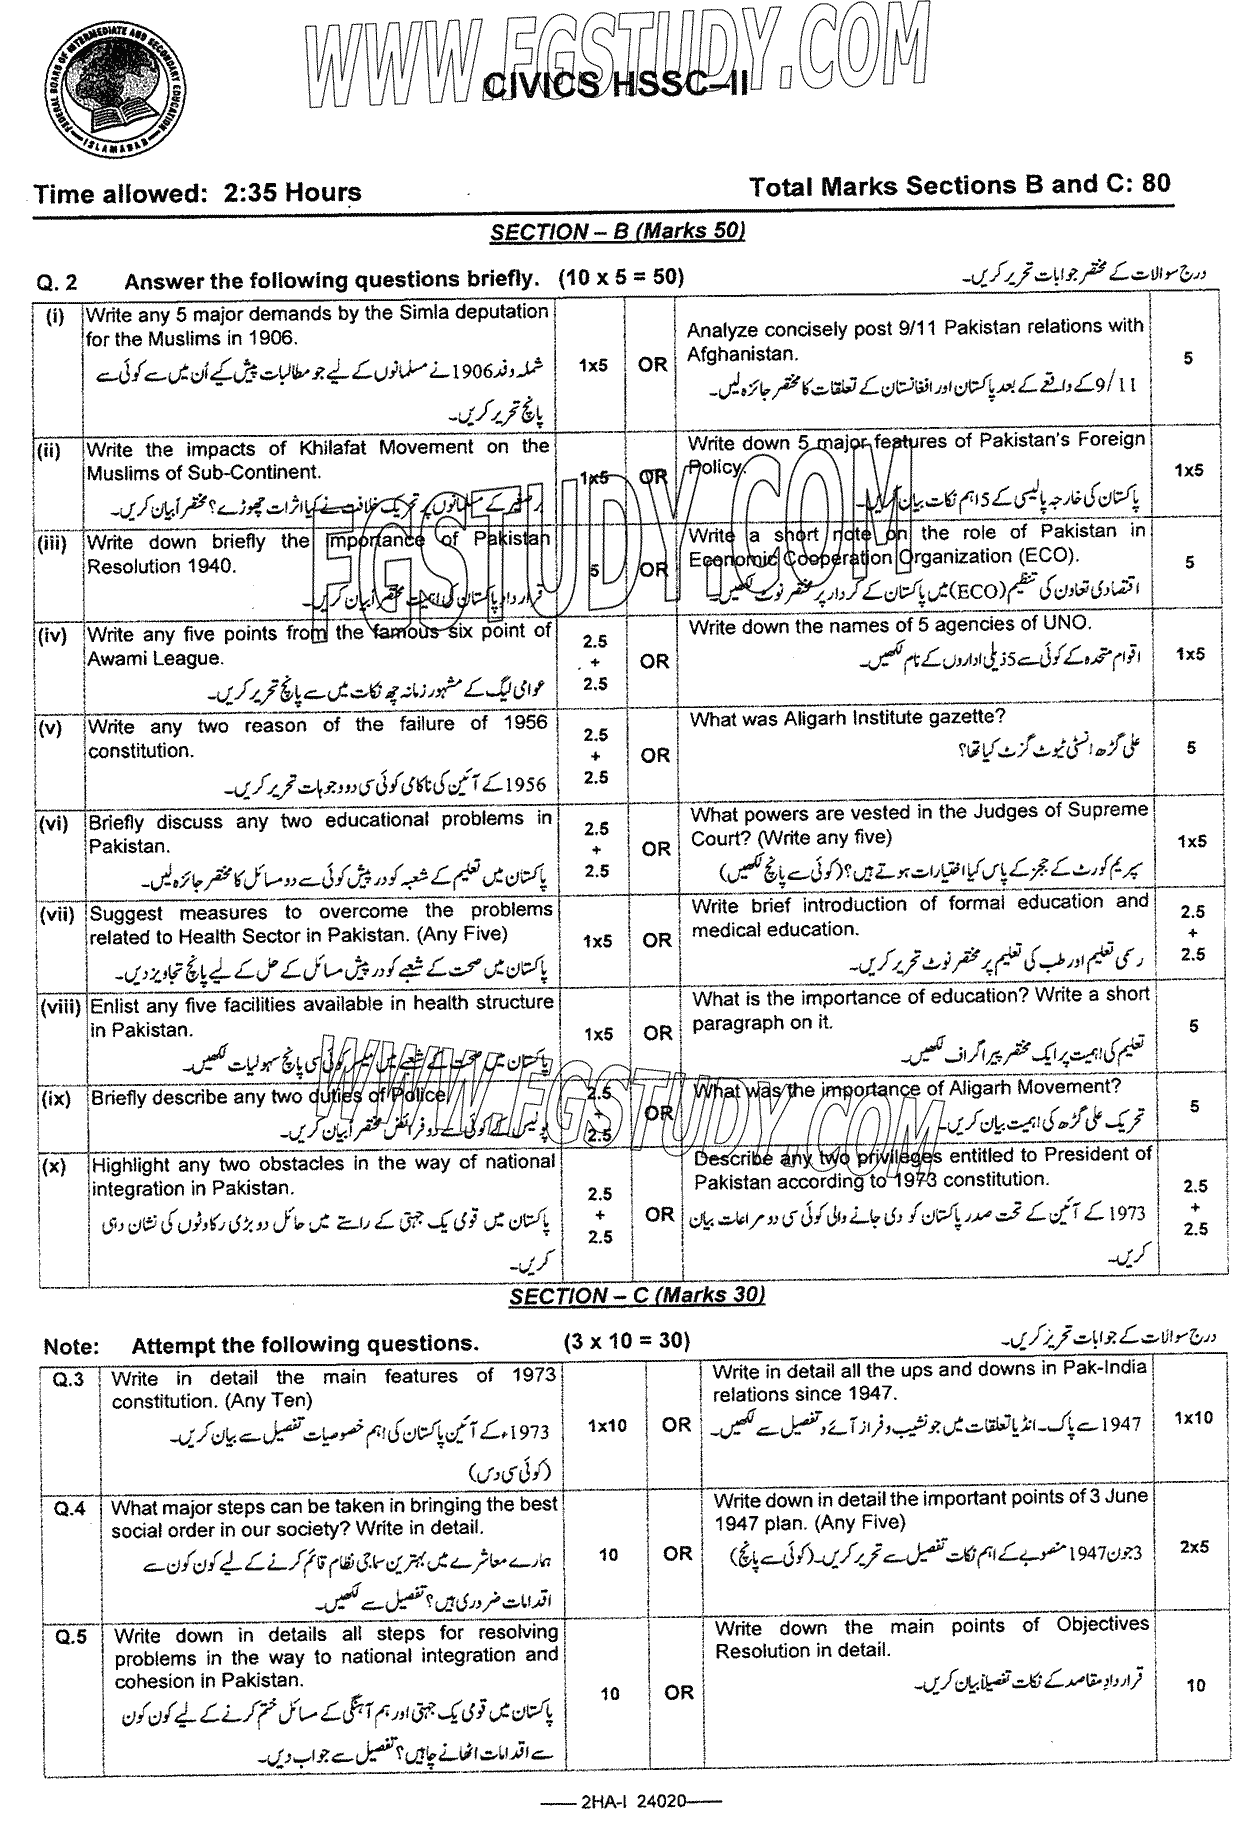 WWW.FGSTUDY.COM
FEDERAL BOARD OF INTERMEDIATE AND SECONDARY EDUCATION
ISLAMABAD
CIVICS HSSC–II
Time allowed: 2:35 Hours
Total Marks Sections B and C: 80
SECTION – B (Marks 50)
Q. 2 Answer the following questions briefly. (10 x 5 = 50)
درج سوالات کے مختصر جوابات تحریر کریں۔
(i) Write any 5 major demands by the Simla deputation
for the Muslims in 1906.
شملہ وفد 1906 نے مسلمانوں کے لیے جو مطالبات پیش کیے اُن میں سے کوئی سے
پانچ تحریر کریں۔
1x5
OR
Analyze concisely post 9/11 Pakistan relations with
Afghanistan.
9/11 کے واقعے کے بعد پاکستان اور افغانستان کے تعلقات کا مختصر جائزہ لیں۔
5
(ii) Write the impacts of Khilafat Movement on the
Muslims of Sub-Continent.
برصغیر کے مسلمانوں پر تحریک خلافت نے کیا اثرات چھوڑے؟ مختصر اًبیان کریں۔
1x5
OR
Write down 5 major features of Pakistan's Foreign
Policy.
پاکستان کی خارجہ پالیسی کے 5 اہم نکات بیان کریں۔
1x5
FGSTUDY.COM
(iii) Write down briefly the Importance of Pakistan
Resolution 1940.
قرار داد پاکستان کی اہمیت مختصر اًبیان کریں۔
5
OR
Write a short note on the role of Pakistan in
Economic Cooperation Organization (ECO).
اقتصادی تعاون کی تنظیم (ECO) میں پاکستان کے کردار پر مختصر نوٹ لکھیں۔
5
(iv) Write any five points from the famous six point of
Awami League.
عوامی لیگ کے مشہور زمانہ چھ نکات میں سے پانچ تحریر کریں۔
2.5
+
2.5
OR
Write down the names of 5 agencies of UNO.
اقوام متحدہ کے کوئی سے 5 ذیلی اداروں کے نام لکھیں۔
1x5
(v) Write any two reason of the failure of 1956
constitution.
1956 کے آئین کی ناکامی کوئی سی دو وجوہات تحریر کریں۔
2.5
+
2.5
OR
What was Aligarh Institute gazette?
علی گڑھ انسٹی ٹیوٹ گزٹ کیا تھا؟
5
(vi) Briefly discuss any two educational problems in
Pakistan.
پاکستان میں تعلیم کے شعبہ کو درپیش کوئی سے دو مسائل کا مختصر جائزہ لیں۔
2.5
+
2.5
OR
What powers are vested in the Judges of Supreme
Court? (Write any five)
سپریم کورٹ کے ججز کے پاس کیا اختیارات ہوتے ہیں؟ (کوئی سے پانچ لکھیں)
1x5
(vii) Suggest measures to overcome the problems
related to Health Sector in Pakistan. (Any Five)
پاکستان میں صحت کے شعبے کو درپیش مسائل کے حل کے لیے پانچ تجاویز دیں۔
1x5
OR
Write brief introduction of formal education and
medical education.
رسمی تعلیم اور طب کی تعلیم پر مختصر نوٹ تحریر کریں۔
2.5
+
2.5
(viii) Enlist any five facilities available in health structure
in Pakistan.
پاکستان میں صحت کے شعبے میں میسر کوئی سی پانچ سہولیات لکھیں۔
1x5
OR
What is the importance of education? Write a short
paragraph on it.
تعلیم کی اہمیت پر ایک مختصر پیراگراف لکھیں۔
5
WWW.FGSTUDY.COM
(ix) Briefly describe any two duties of Police.
پولیس کے کوئی سے دو فرائض مختصر اًبیان کریں۔
2.5
+
2.5
OR
What was the importance of Aligarh Movement?
تحریک علی گڑھ کی اہمیت بیان کریں۔
5
(x) Highlight any two obstacles in the way of national
integration in Pakistan.
پاکستان میں قومی یک جہتی کے راستے میں حائل دو بڑی رکاوٹوں کی نشان دہی
کریں۔
2.5
+
2.5
OR
Describe any two privileges entitled to President of
Pakistan according to 1973 constitution.
1973 کے آئین کے تحت صدر پاکستان کو دی جانے والی کوئی سی دو مراعات بیان
کریں۔
2.5
+
2.5
SECTION – C (Marks 30)
Note: Attempt the following questions. (3 x 10 = 30)
درج سوالات کے جوابات تحریر کریں۔
Q.3 Write in detail the main features of 1973
constitution. (Any Ten)
1973ء کے آئین پاکستان کی اہم خصوصیات تفصیل سے بیان کریں۔
(کوئی سی دس)
1x10
OR
Write in detail all the ups and downs in Pak-India
relations since 1947.
1947 سے پاک۔انڈیا تعلقات میں جو نشیب و فراز آئے وہ تفصیل سے لکھیں۔
1x10
Q.4 What major steps can be taken in bringing the best
social order in our society? Write in detail.
ہمارے معاشرے میں بہترین سماجی نظام قائم کرنے کے لیے کون کون سے
اقدامات ضروری ہیں؟ تفصیل سے لکھیں۔
10
OR
Write down in detail the important points of 3 June
1947 plan. (Any Five)
3 جون 1947 منصوبے کے اہم نکات تفصیل سے تحریر کریں۔ (کوئی سے پانچ)
2x5
Q.5 Write down in details all steps for resolving
problems in the way to national integration and
cohesion in Pakistan.
پاکستان میں قومی یک جہتی اور ہم آہنگی کے مسائل ختم کرنے کے لیے کون کون
سے اقدامات اٹھانے چاہیں؟ تفصیل سے جواب دیں۔
10
OR
Write down the main points of Objectives
Resolution in detail.
قراردادِ مقاصد کے نکات تفصیلاً بیان کریں۔
10
—— 2HA-I 24020——